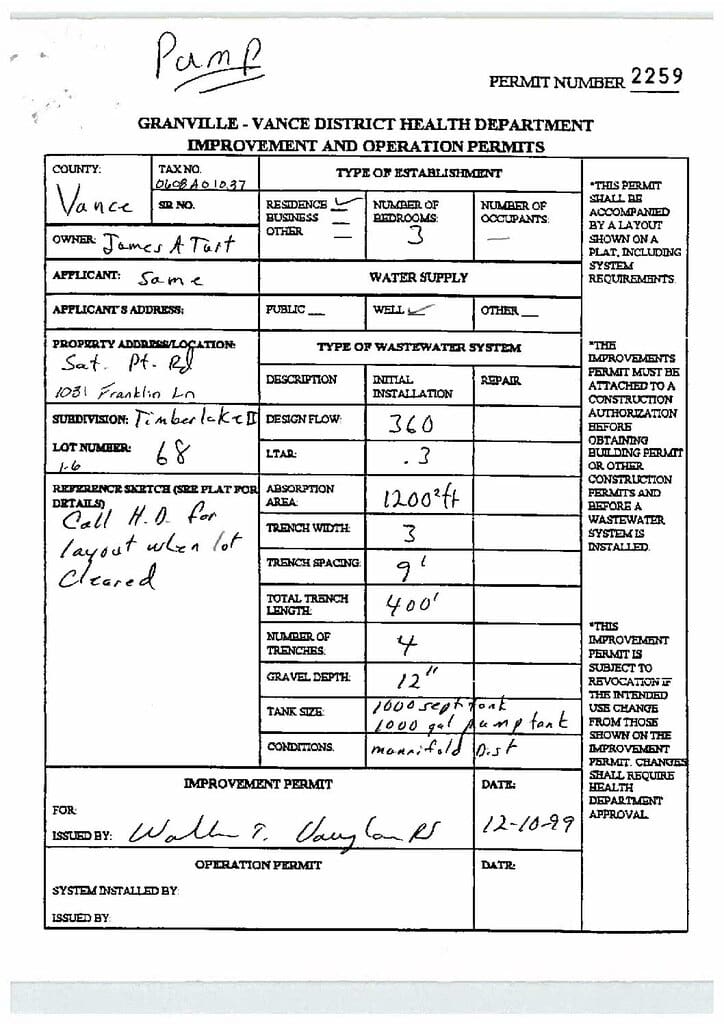 Pump
PERMIT NUMBER 2259
GRANVILLE - VANCE DISTRICT HEALTH DEPARTMENT
IMPROVEMENT AND OPERATION PERMITS
COUNTY:
Vance
TAX NO.
0608A01037
SR NO.
OWNER: James A Tart
APPLICANT: Same
APPLICANT'S ADDRESS:
PROPERTY ADDRESS/LOCATION:
Sat. Pt. Rd
1031 Franklin Ln
SUBDIVISION: Timberlake II
LOT NUMBER: 68
1.6
REFERENCE SKETCH (SEE PLAT FOR
DETAILS)
Call H.D. for
layout when lot
cleared
TYPE OF ESTABLISHMENT
RESIDENCE ✓
BUSINESS __
OTHER __
NUMBER OF
BEDROOMS:
3
NUMBER OF
OCCUPANTS:
—
WATER SUPPLY
PUBLIC __
WELL ✓
OTHER __
TYPE OF WASTEWATER SYSTEM
DESCRIPTION
INITIAL
INSTALLATION
REPAIR
DESIGN FLOW: 360
LTAR: .3
ABSORPTION
AREA: 1200²ft
TRENCH WIDTH: 3
TRENCH SPACING: 9'
TOTAL TRENCH
LENGTH: 400'
NUMBER OF
TRENCHES: 4
GRAVEL DEPTH: 12"
TANK SIZE: 1000 sept tank
1000 gal pump tank
CONDITIONS. mannifold Dist
*THIS PERMIT
SHALL BE
ACCOMPANIED
BY A LAYOUT
SHOWN ON A
PLAT, INCLUDING
SYSTEM
REQUIREMENTS
*THE
IMPROVEMENTS
PERMIT MUST BE
ATTACHED TO A
CONSTRUCTION
AUTHORIZATION
BEFORE
OBTAINING
BUILDING PERMIT
OR OTHER
CONSTRUCTION
PERMITS AND
BEFORE A
WASTEWATER
SYSTEM IS
INSTALLED.
*THIS
IMPROVEMENT
PERMIT IS
SUBJECT TO
REVOCATION IF
THE INTENDED
USE CHANGE
FROM THOSE
SHOWN ON THE
IMPROVEMENT
PERMIT. CHANGES
SHALL REQUIRE
HEALTH
DEPARTMENT
APPROVAL
IMPROVEMENT PERMIT
FOR:
ISSUED BY: T. Vaughan RS
DATE:
12-10-99
OPERATION PERMIT
SYSTEM INSTALLED BY:
ISSUED BY
DATE: